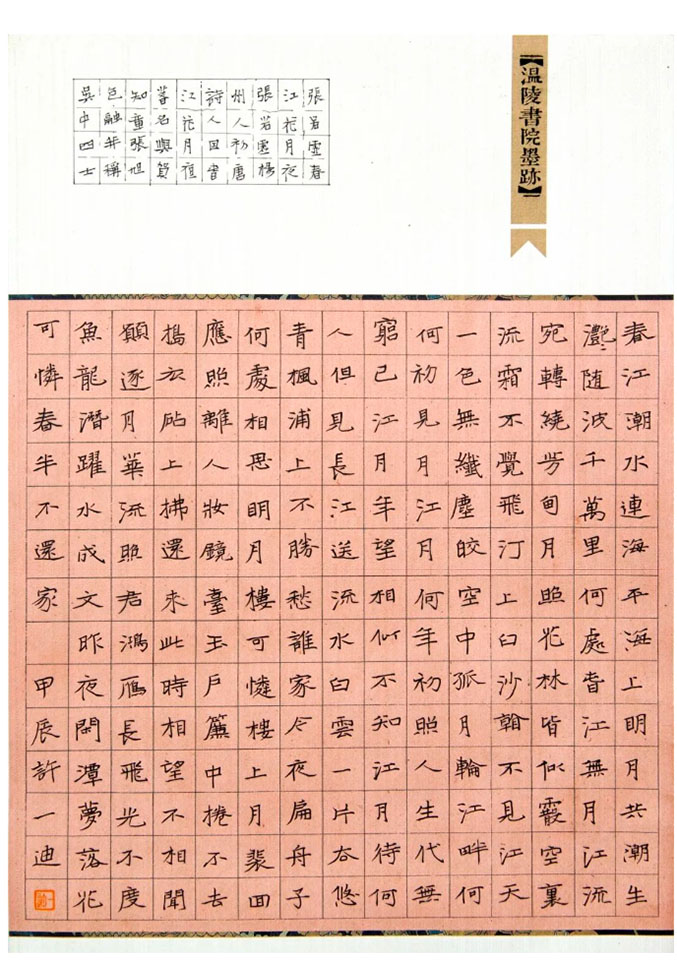 【温陵書院墨跡】
張若虛春
江花月夜
張若虛楊
州人初唐
詩人因書
江花月夜
著名與賀
知章張旭
包融并稱
吳中四士
春江潮水連海平海上明月共潮生
灩〻随波千萬里何處春江無月江流
宛轉繞芳甸月照花林皆似霰空裏
流霜不覺飛汀上白沙翰不見江天
一色無纖塵皎空中孤月輪江畔何
何初見月江月何年初照人生代無
窮已江月年望相似不知江月待何
人但見長江送流水白雲一片去悠
青楓浦上不勝愁誰家今夜扁舟子
何處相思明月樓可憐樓上月裴回
應照離人妝鏡臺玉戶簾中捲不去
搗衣砧上拂還來此時相望不相聞
願逐月華流照君鴻雁長飛光不度
魚龍潛躍水成文昨夜閑潭夢落花
可憐春半不還家 甲辰許一迪